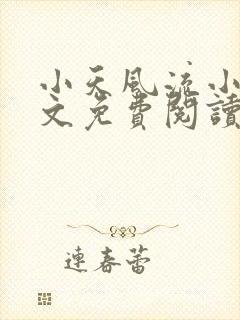 小天風流小
文免費閱讀
連春蕾